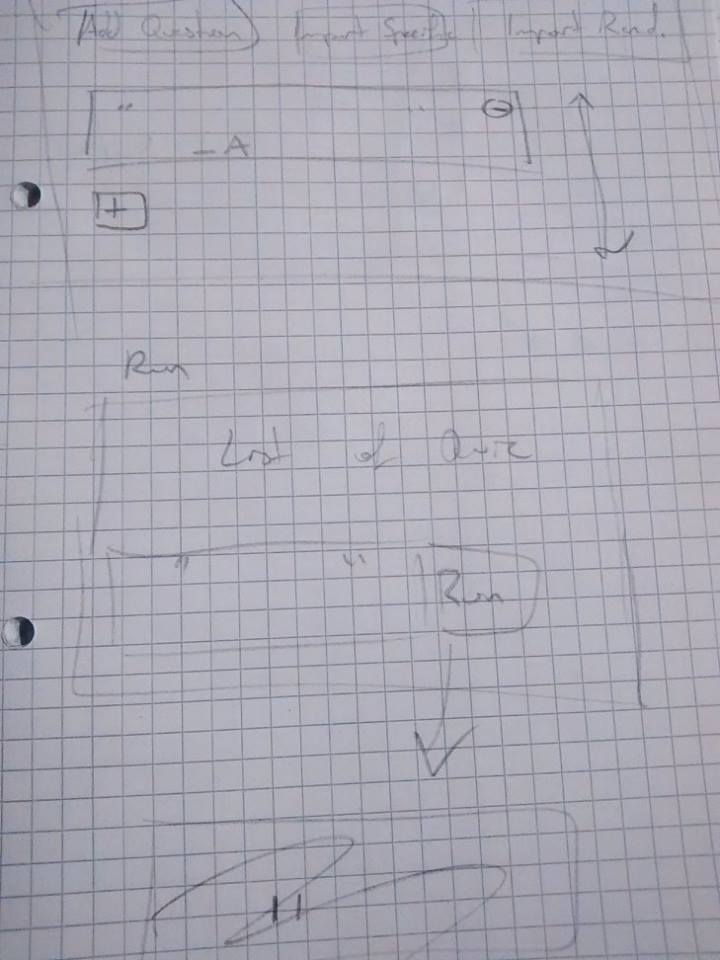 Add Question Import Specific Import Rand.
" "
- A
+
Run
List of Quiz
" " Run